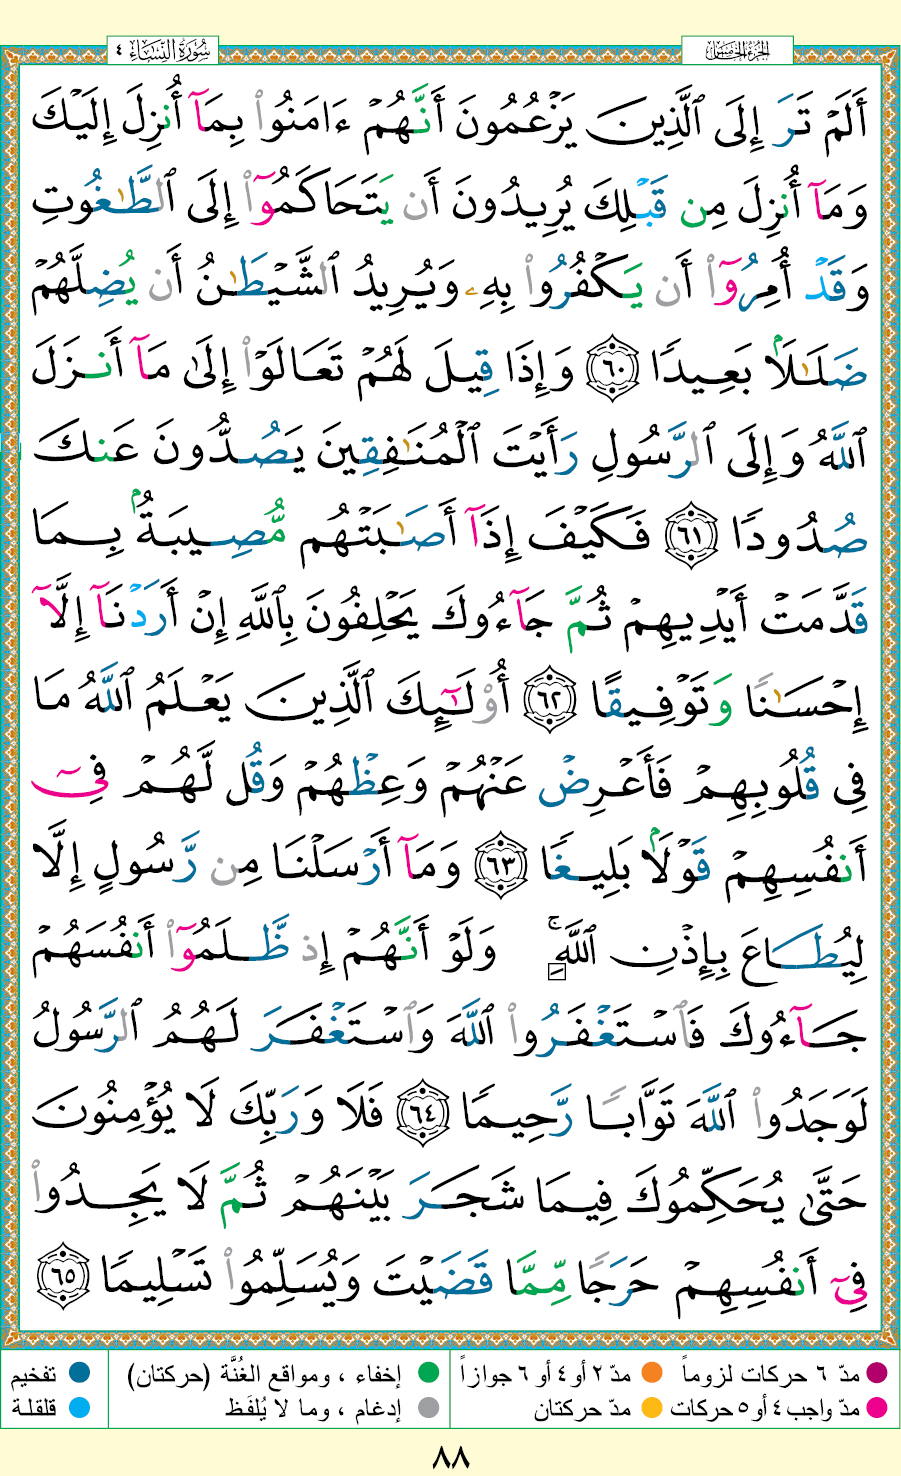 سُورَةُ النِّسَاءِ ٤
الجُزْءُ الخَامِسُ
أَلَمْ تَرَ إِلَى ٱلَّذِينَ يَزْعُمُونَ أَنَّهُمْ ءَامَنُوا۟ بِمَآ أُنزِلَ إِلَيْكَ
وَمَآ أُنزِلَ مِن قَبْلِكَ يُرِيدُونَ أَن يَتَحَاكَمُوٓا۟ إِلَى ٱلطَّٰغُوتِ
وَقَدْ أُمِرُوٓا۟ أَن يَكْفُرُوا۟ بِهِۦ وَيُرِيدُ ٱلشَّيْطَٰنُ أَن يُضِلَّهُمْ
ضَلَٰلًۢا بَعِيدًا ٦٠ وَإِذَا قِيلَ لَهُمْ تَعَالَوْا۟ إِلَىٰ مَآ أَنزَلَ
ٱللَّهُ وَإِلَى ٱلرَّسُولِ رَأَيْتَ ٱلْمُنَٰفِقِينَ يَصُدُّونَ عَنكَ
صُدُودًا ٦١ فَكَيْفَ إِذَآ أَصَٰبَتْهُم مُّصِيبَةٌۢ بِمَا
قَدَّمَتْ أَيْدِيهِمْ ثُمَّ جَآءُوكَ يَحْلِفُونَ بِٱللَّهِ إِنْ أَرَدْنَآ إِلَّآ
إِحْسَٰنًا وَتَوْفِيقًا ٦٢ أُو۟لَٰٓئِكَ ٱلَّذِينَ يَعْلَمُ ٱللَّهُ مَا
فِى قُلُوبِهِمْ فَأَعْرِضْ عَنْهُمْ وَعِظْهُمْ وَقُل لَّهُمْ فِىٓ
أَنفُسِهِمْ قَوْلًۢا بَلِيغًا ٦٣ وَمَآ أَرْسَلْنَا مِن رَّسُولٍ إِلَّا
لِيُطَاعَ بِإِذْنِ ٱللَّهِ ۚ وَلَوْ أَنَّهُمْ إِذ ظَّلَمُوٓا۟ أَنفُسَهُمْ
جَآءُوكَ فَٱسْتَغْفَرُوا۟ ٱللَّهَ وَٱسْتَغْفَرَ لَهُمُ ٱلرَّسُولُ
لَوَجَدُوا۟ ٱللَّهَ تَوَّابًا رَّحِيمًا ٦٤ فَلَا وَرَبِّكَ لَا يُؤْمِنُونَ
حَتَّىٰ يُحَكِّمُوكَ فِيمَا شَجَرَ بَيْنَهُمْ ثُمَّ لَا يَجِدُوا۟
فِىٓ أَنفُسِهِمْ حَرَجًا مِّمَّا قَضَيْتَ وَيُسَلِّمُوا۟ تَسْلِيمًا ٦٥
مدّ ٦ حركات لزوماً مدّ ٢ أو ٤ أو ٦ جوازاً إخفاء ، ومواقع الغُنَّة (حركتان) تفخيم
مدّ واجب ٤ أو ٥ حركات مدّ حركتان إدغام ، وما لا يُلفَظ قلقلة
٨٨